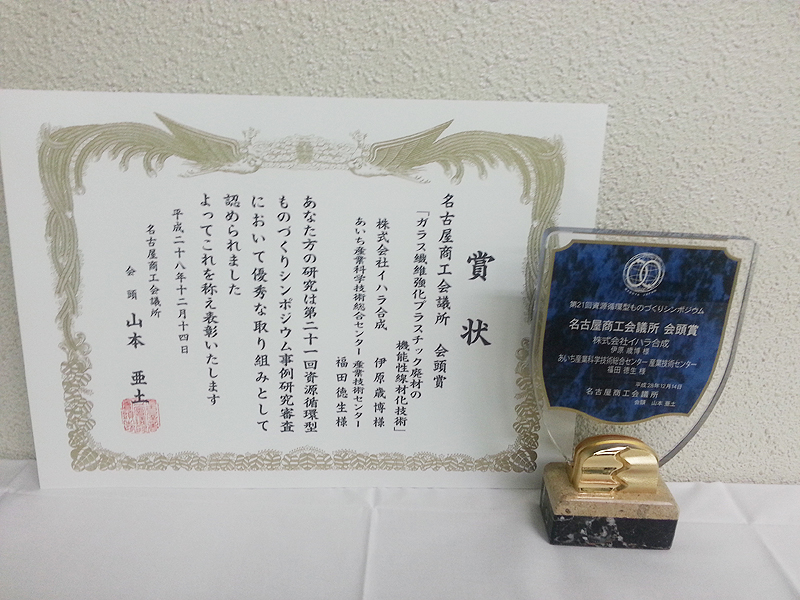 賞状
名古屋商工会議所 会頭賞
「ガラス繊維強化プラスチック廃材の
機能性線材化技術」
株式会社イハラ合成 伊原歳博様
あいち産業科学技術総合センター 産業技術センター
福田徳生様
あなた方の研究は第二十一回資源循環型
ものづくりシンポジウム事例研究審査
において優秀な取り組みとして
認められました
よってこれを称え表彰いたします
平成二十八年十二月十四日
名古屋商工会議所
会頭 山本亜土
第21回資源循環型ものづくりシンポジウム
名古屋商工会議所 会頭賞
株式会社イハラ合成
伊原 歳博 様
あいち産業科学技術総合センター 産業技術センター
福田 徳生 様
平成28年12月14日
名古屋商工会議所
会頭 山本 亜土